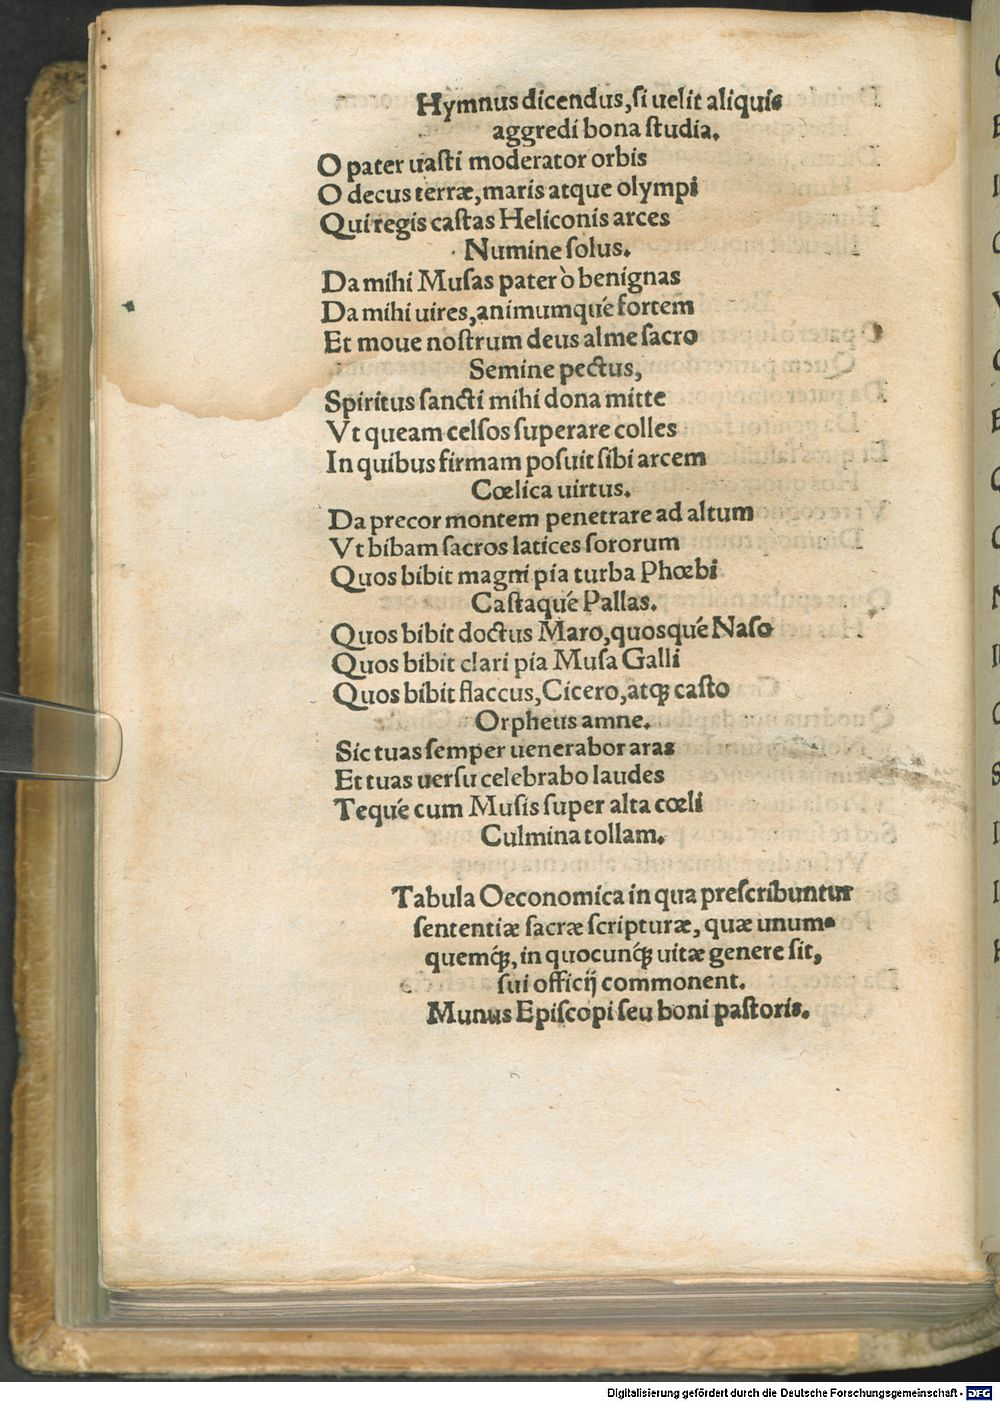 Hymnus dicendus, ſi uelit aliquis
aggredi bona ſtudia.
O pater uaſti moderator orbis
O decus terræ, maris atque olympi
Qui regis caſtas Heliconis arces
Numine ſolus.
Da mihi Muſas pater ò benignas
Da mihi uires, animumqúe fortem
Et moue noſtrum deus alme ſacro
Semine pectus,
Spiritus ſancti mihi dona mitte
Vt queam celſos ſuperare colles
In quibus firmam poſuit ſibi arcem
Cœlica uirtus.
Da precor montem penetrare ad altum
Vt bibam ſacros latices ſororum
Quos bibit magni pia turba Phœbi
Caſtaqúe Pallas.
Quos bibit doctus Maro, quosqúe Naſo
Quos bibit clari pia Muſa Galli
Quos bibit flaccus, Cicero, atqꝫ caſto
Orpheus amne.
Sic tuas ſemper uenerabor aras
Et tuas uerſu celebrabo laudes
Teqúe cum Muſis ſuper alta cœli
Culmina tollam.
Tabula Oeconomica in qua preſcribuntur
ſententiæ ſacræ ſcripturæ, quæ unum-
quemq́ꝫ, in quocunq́ꝫ uitæ genere ſit,
ſui officij commonent.
Munus Epiſcopi ſeu boni paſtoris.
Digitalisierung gefördert durch die Deutsche Forschungsgemeinschaft - DFG